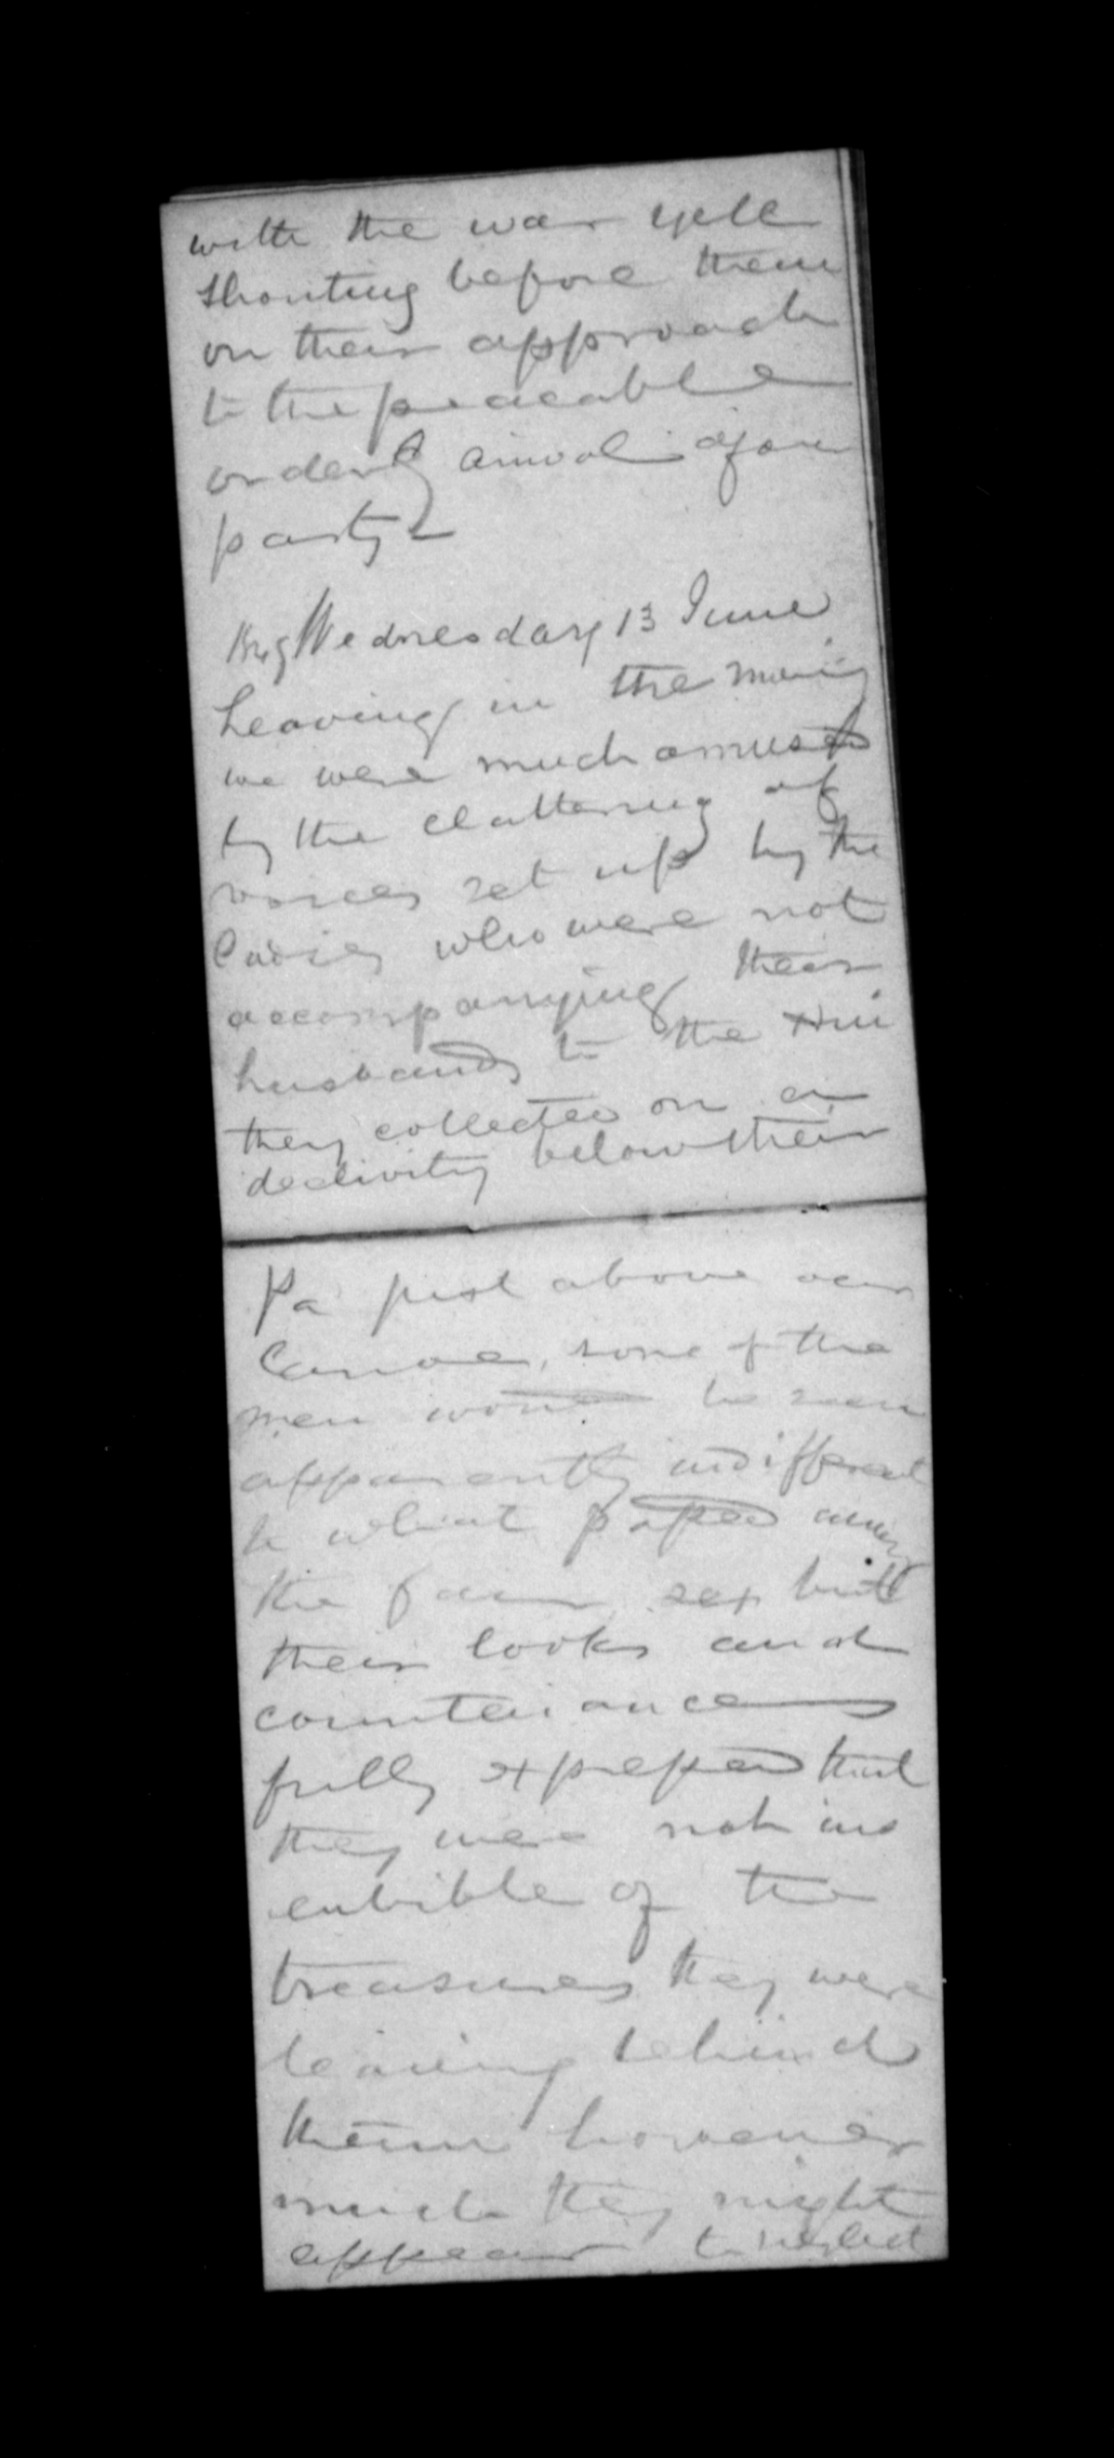 with the war yell
shouting before them
on their approach
to the peaceable
orderly arrival of our
party
Wednesday 13 June
Leaving in the morning
we were much amused
by the clattering of
voices set up by the
ladies who were not
accompanying their
husbands to the Hui
they collected on a
declivity below their
Pa just above our
Canoe, some of the
men would be seen
apparently indifferent
to what passed among
the fair sex but
their looks and
countenances
fully expressed that
they were not ins
ensible of the
treasures they were
leaving behind
them however
much they might
appear to neglect